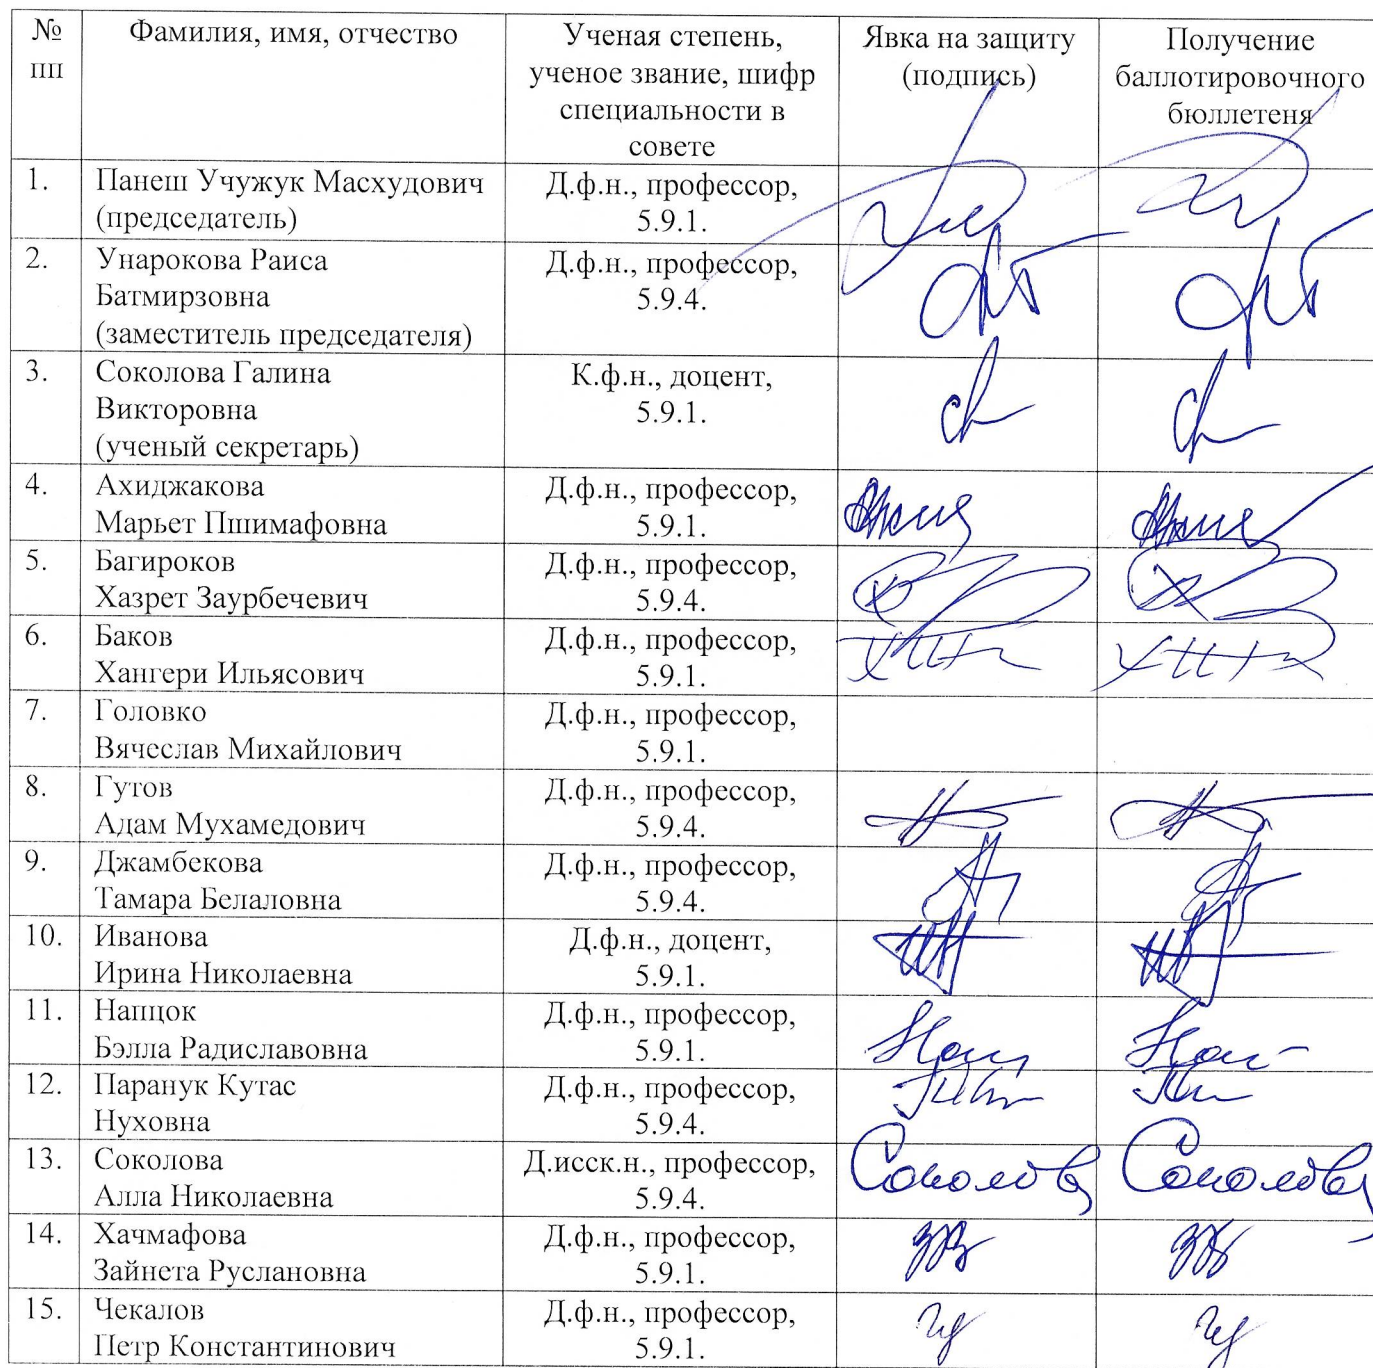 №
пп
Фамилия, имя, отчество
Ученая степень,
ученое звание, шифр
специальности в
совете
Явка на защиту
(подпись)
Получение
баллотировочного
бюллетеня
1.
Панеш Учужук Масхудович
(председатель)
Д.ф.н., профессор,
5.9.1.
2.
Унарокова Раиса
Батмирзовна
(заместитель председателя)
Д.ф.н., профессор,
5.9.4.
3.
Соколова Галина
Викторовна
(ученый секретарь)
К.ф.н., доцент,
5.9.1.
4.
Ахиджакова
Марьет Пшимафовна
Д.ф.н., профессор,
5.9.1.
5.
Багироков
Хазрет Заурбечевич
Д.ф.н., профессор,
5.9.4.
6.
Баков
Хангери Ильясович
Д.ф.н., профессор,
5.9.1.
7.
Головко
Вячеслав Михайлович
Д.ф.н., профессор,
5.9.1.
8.
Гутов
Адам Мухамедович
Д.ф.н., профессор,
5.9.4.
9.
Джамбекова
Тамара Белаловна
Д.ф.н., профессор,
5.9.4.
10.
Иванова
Ирина Николаевна
Д.ф.н., доцент,
5.9.1.
11.
Напцок
Бэлла Радиславовна
Д.ф.н., профессор,
5.9.1.
12.
Паранук Кутас
Нуховна
Д.ф.н., профессор,
5.9.4.
13.
Соколова
Алла Николаевна
Д.исск.н., профессор,
5.9.4.
Соколова
Соколова
14.
Хачмафова
Зайнета Руслановна
Д.ф.н., профессор,
5.9.1.
15.
Чекалов
Петр Константинович
Д.ф.н., профессор,
5.9.1.